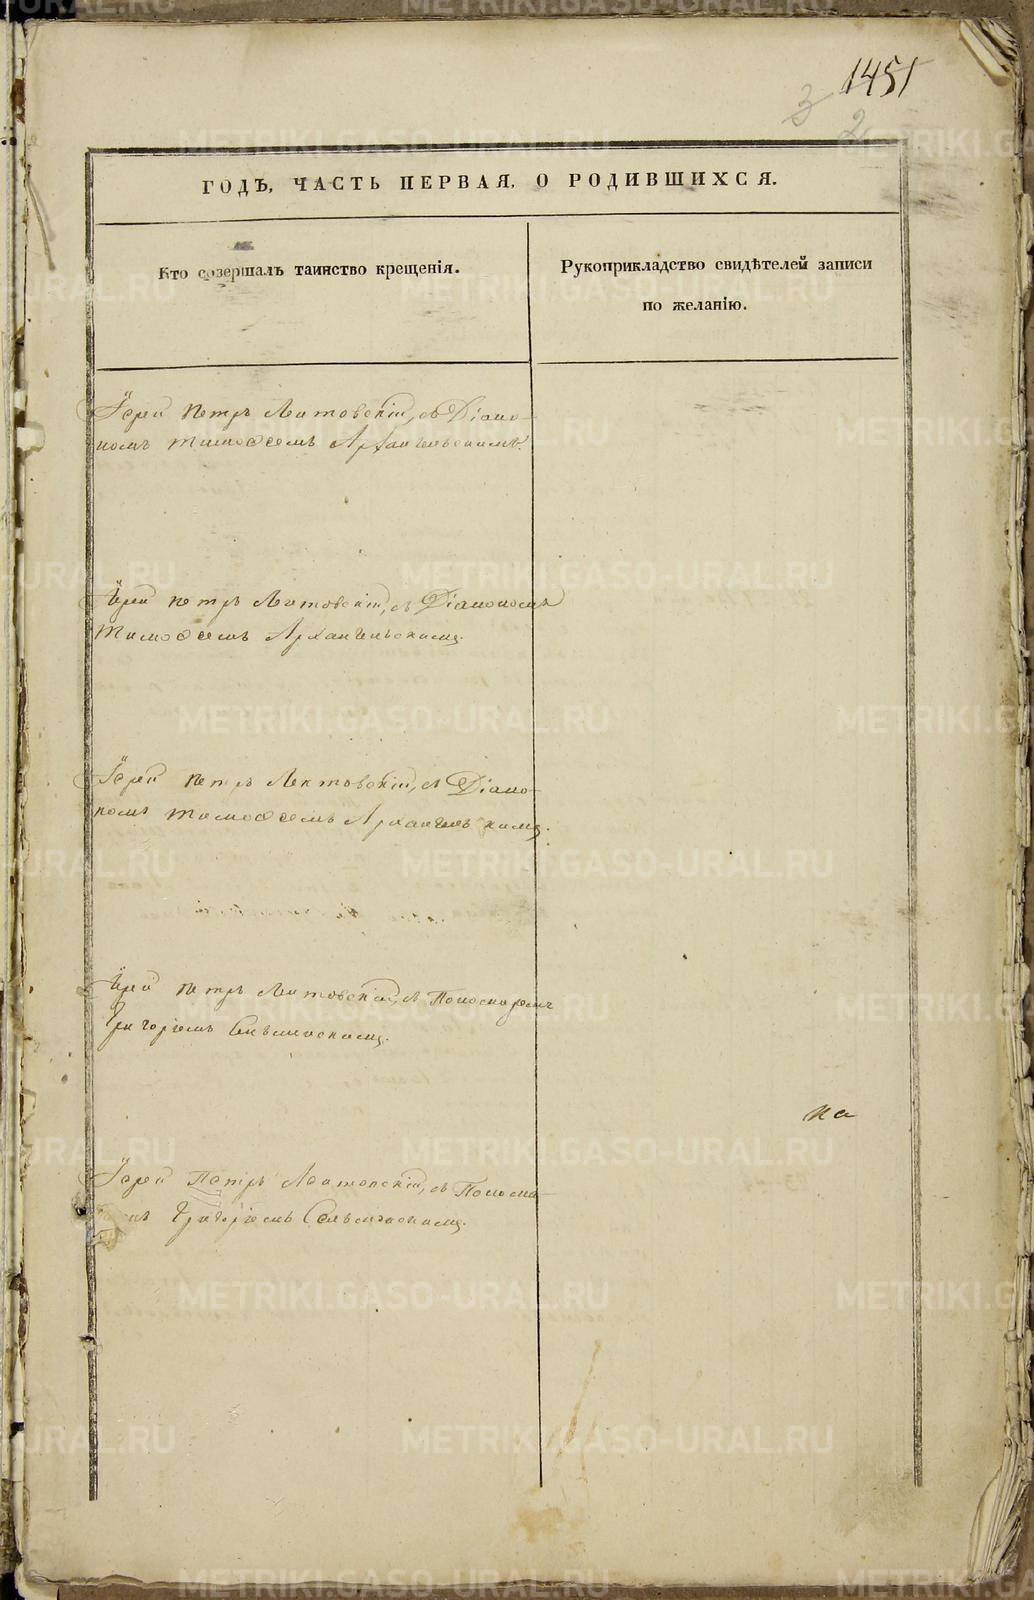 1451
3
2
ГОДЪ, ЧАСТЬ ПЕРВАЯ, О РОДИВШИХСЯ.
Кто совершалъ таинство крещенія.
Рукоприкладство свидѣтелей записи
по желанію.
Іерей Петръ Лептовскій, съ Діако-
номъ Тимоѳеемъ Архангельскимъ.
Іерей Петръ Лептовскій, съ Діакономъ
Тимоѳеемъ Архангельскимъ.
Іерей Петръ Лептовскій, съ Діако-
номъ Тимоѳеемъ Архангельскимъ.
Іерей Петръ Лептовскій, съ Пономаремъ
Григоріемъ
на
Іерей Петръ Лептовскій, съ Понома-
Григоріемъ
METRIKI.GASO-URAL.RU